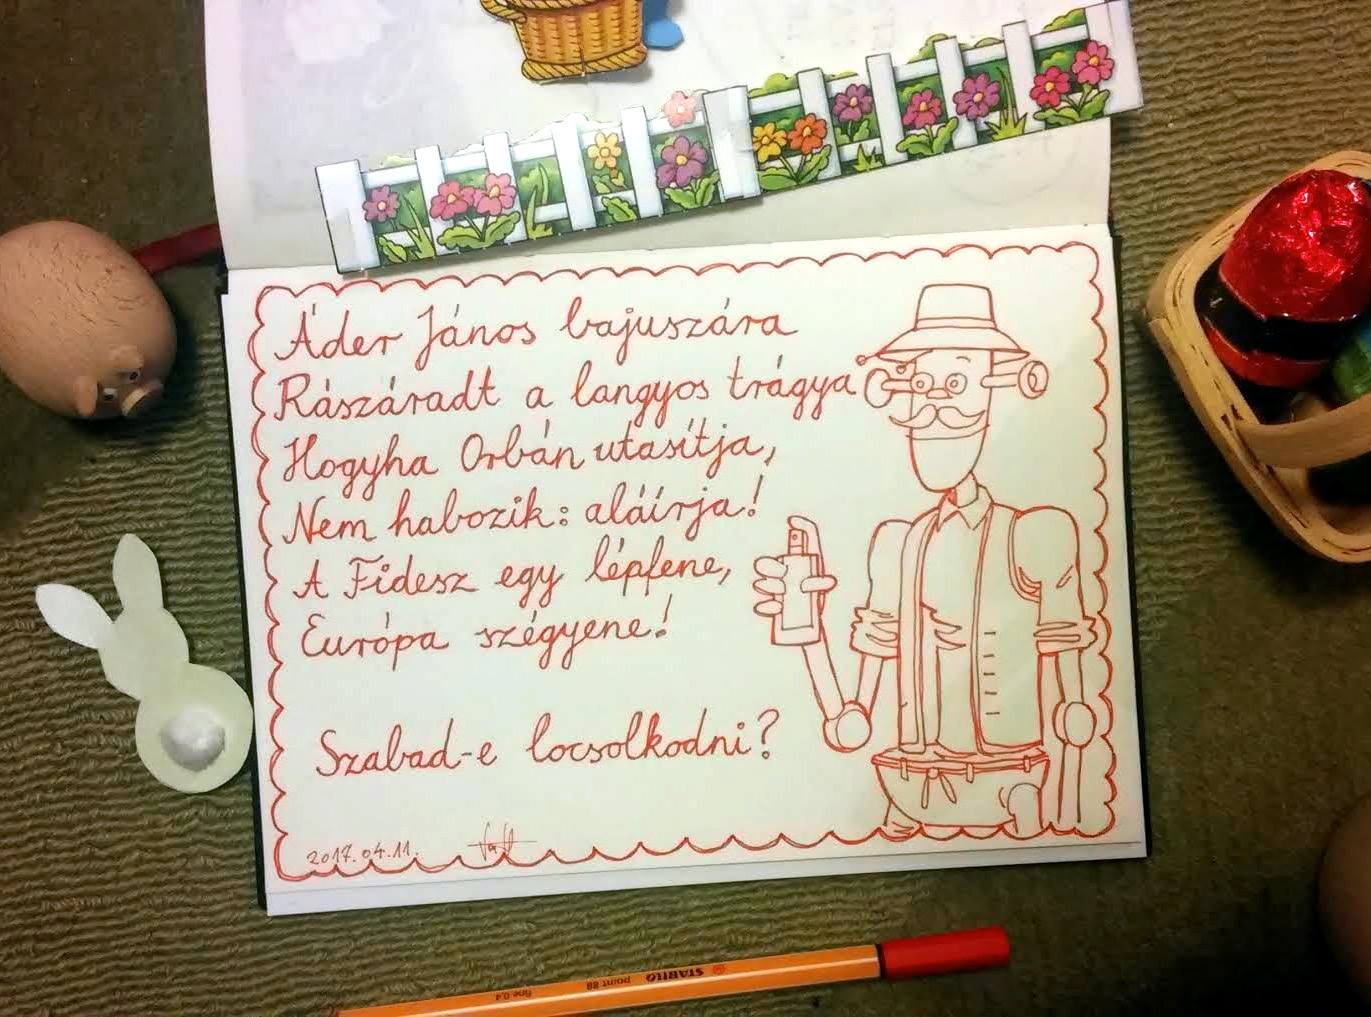 Áder János bajuszára
Rászáradt a langyos trágya
Hogyha Orbán utasítja,
Nem habozik: aláírja!
A Fidesz egy lépfene,
Európa szégyene!
Szabad-e locsolkodni?
2017.04.11.
STABILO
point 88
fine 0,4